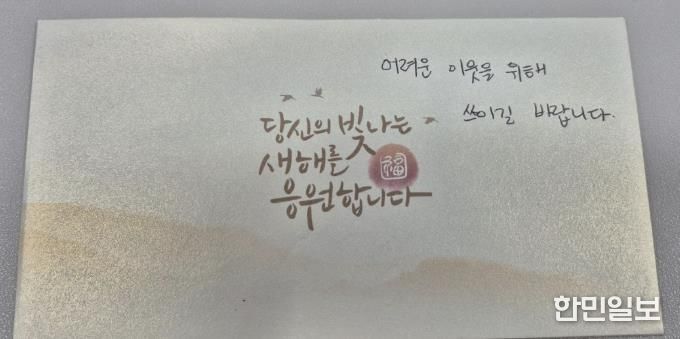 어려운 이웃을 위해
쓰이길 바랍니다.
당신의 빛나는
새해를 福
응원합니다
한민일보